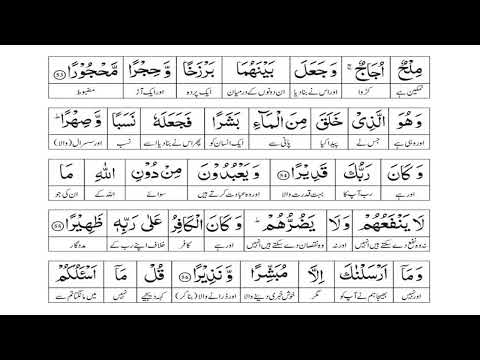 مِلْحٌ اُجَاجٌ ۚ وَجَعَلَ بَيْنَهُمَا بَرْزَخًا وَّحِجْرًا مَّحْجُوْرًا ﴿۵۳﴾
نمکین ہے کڑوا اور اس نے بنا دیا ان دونوں کے درمیان ایک پردہ اور ایک آڑ مضبوط
وَهُوَ الَّذِيْ خَلَقَ مِنَ الْمَآءِ بَشَرًا فَجَعَلَهٗ نَسَبًا وَّصِهْرًا ؕ
اور وہی ہے جس نے پیدا کیا پانی سے ایک انسان کو پھر اس نے بنا دیا اسے نسب اور سسرال (والا)
وَكَانَ رَبُّكَ قَدِيْرًا ﴿۵۴﴾ وَيَعْبُدُوْنَ مِنْ دُوْنِ اللّٰهِ مَا
اور ہے رب آپ کا بہت قدرت والا اور وہ عبادت کرتے ہیں سوائے اللہ کے ان کی جو
لَا يَنْفَعُهُمْ وَلَا يَضُرُّهُمْ ؕ وَكَانَ الْكَافِرُ عَلٰى رَبِّهٖ ظَهِيْرًا ﴿۵۵﴾
نہ وہ نفع دے سکتے ہیں انہیں اور نہ وہ نقصان دے سکتے ہیں انہیں اور ہے کافر خلاف اپنے رب کے مددگار
وَمَآ اَرْسَلْنٰكَ اِلَّا مُبَشِّرًا وَّنَذِيْرًا ﴿۵۶﴾ قُلْ مَآ اَسْئَلُكُمْ
اور نہیں بھیجا ہم نے آپ کو مگر خوش خبری دینے والا اور ڈرانے والا (بنا کر) کہہ دیجیے نہیں میں مانگتا تم سے